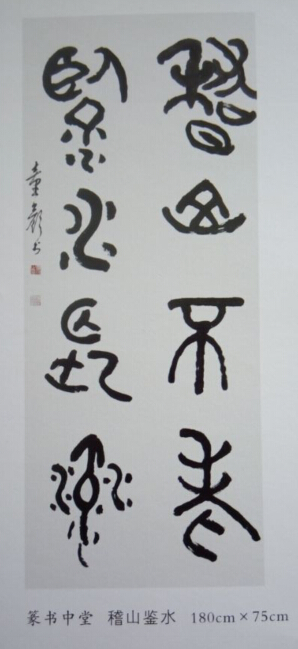 稽山不老
鑒水長流
篆书中堂 稽山鉴水 180cm×75cm